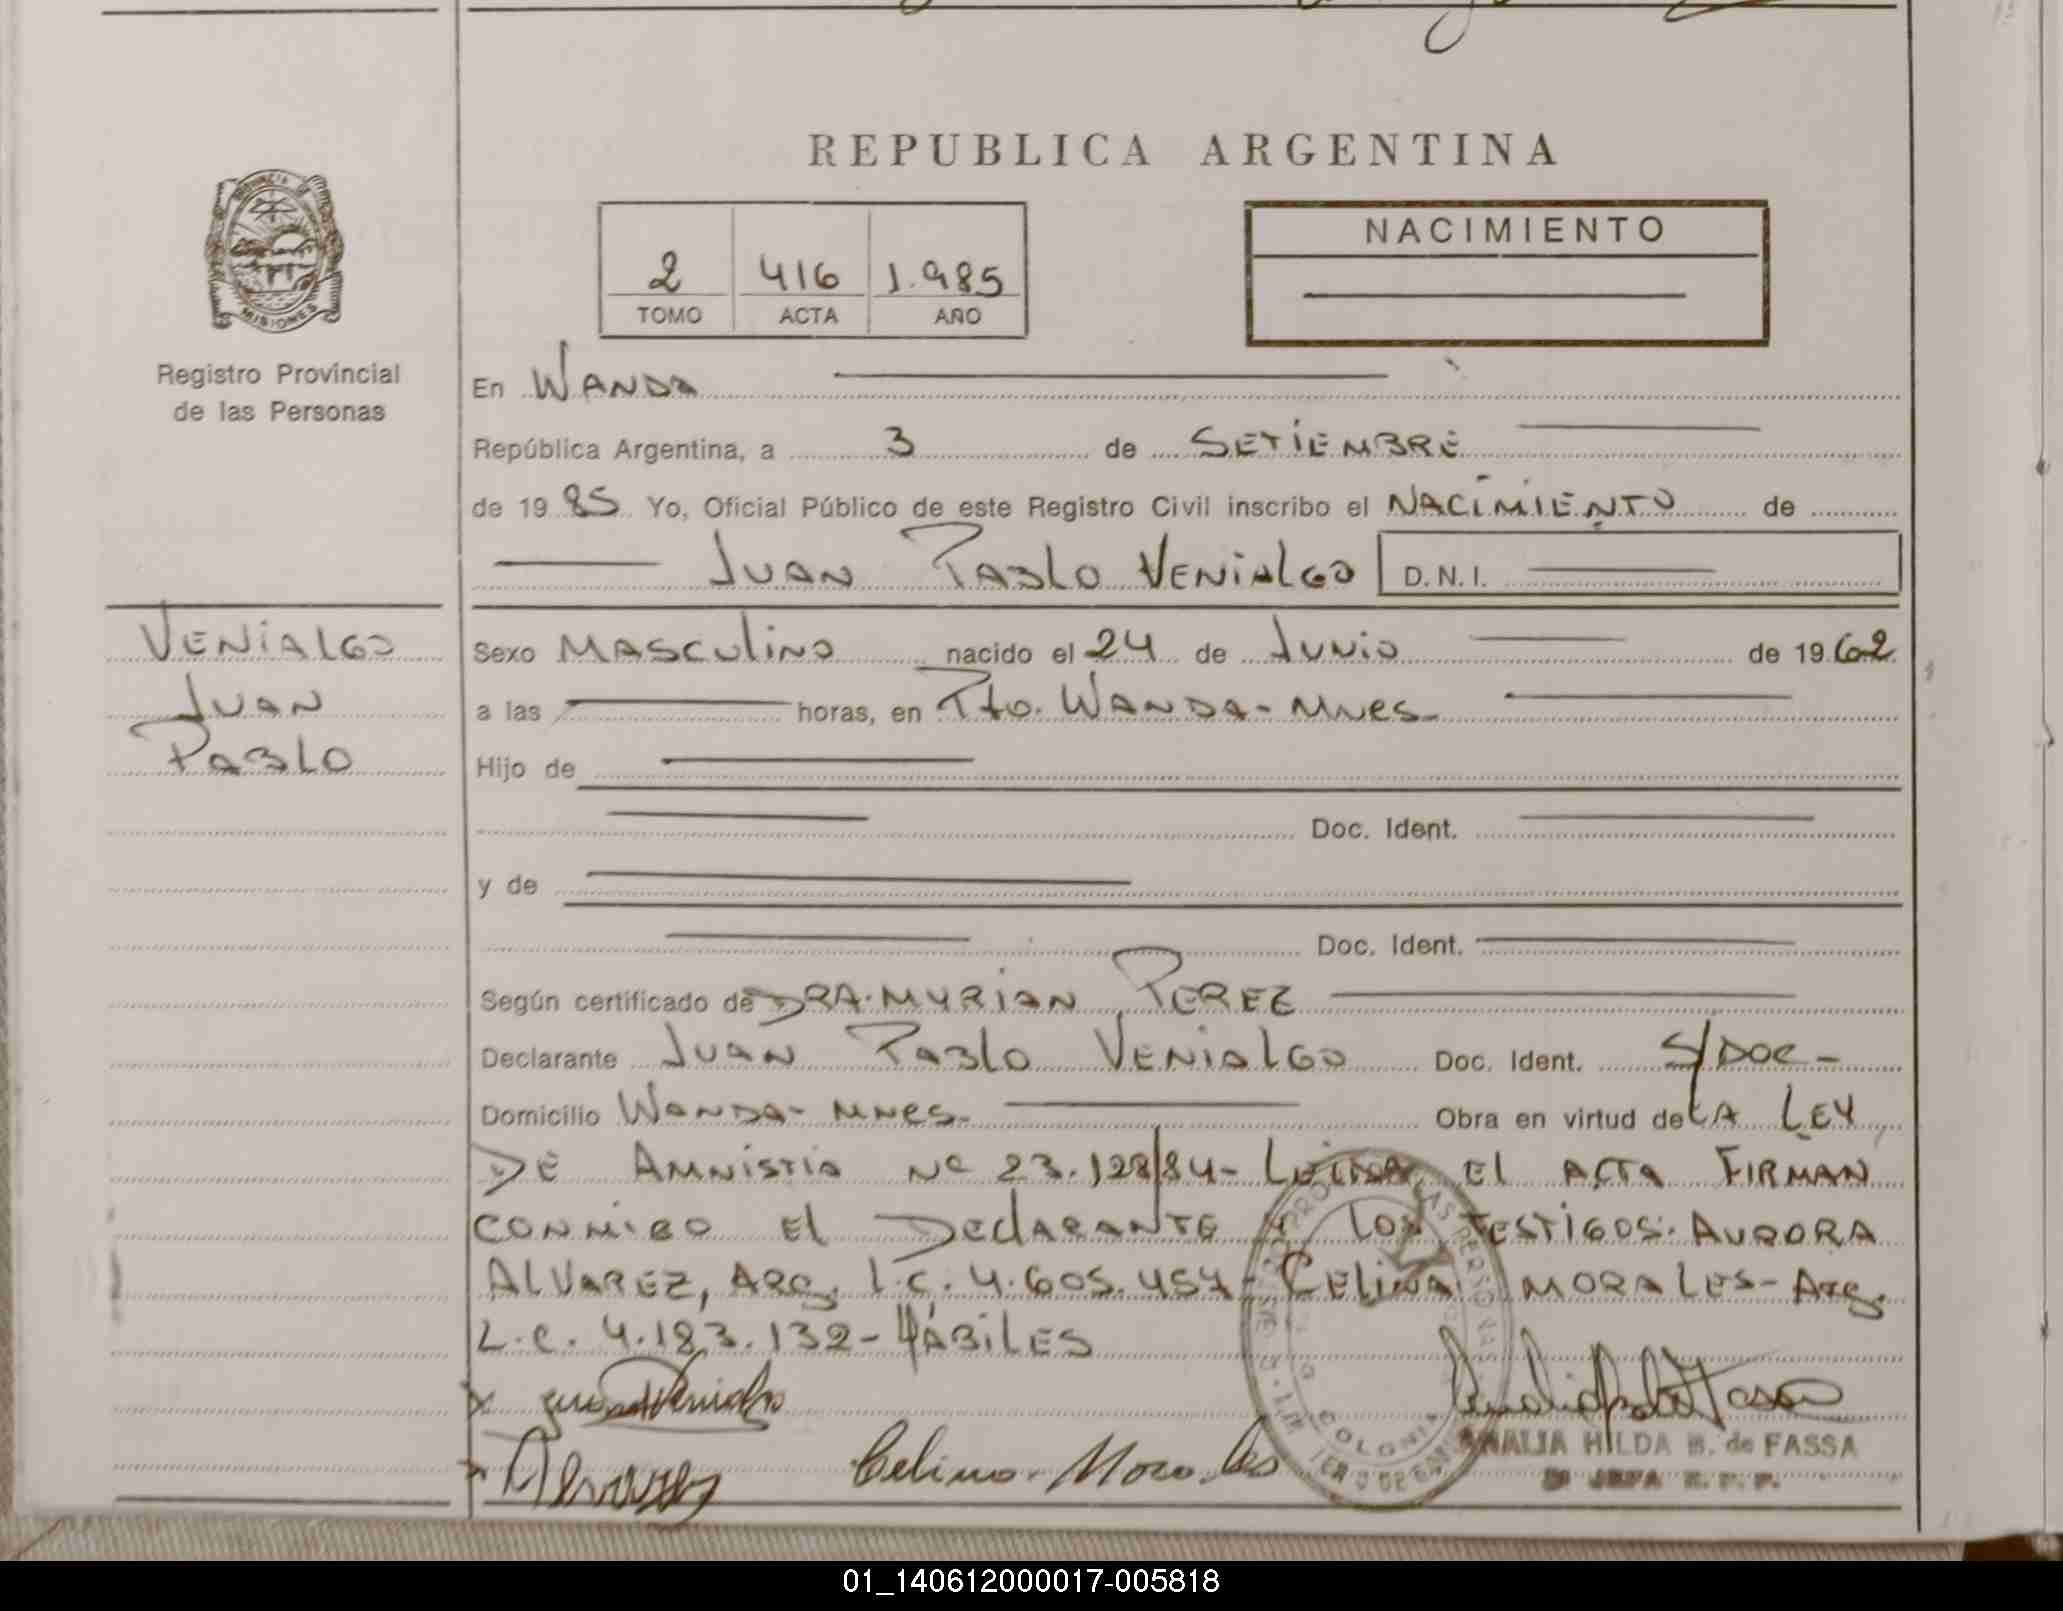 REPUBLICA ARGENTINA
MISIONES
Registro Provincial
de las Personas
2 416 1.985
TOMO ACTA AÑO
NACIMIENTO
En WANDA
República Argentina, a 3 de SETIEMBRE
de 19 85 Yo, Oficial Público de este Registro Civil inscribo el NACIMIENTO de
JUAN PABLO VENIALGO D.N.I.
VENIALGO
JUAN
PABLO
Sexo MASCULINO nacido el 24 de JUNIO de 19 62
a las horas, en Pto. WANDA - Mnes-
Hijo de
Doc. Ident.
y de
Doc. Ident.
Según certificado de DRA. MYRIAN PEREZ
Declarante JUAN PABLO VENIALGO Doc. Ident. S/DOC-
Domicilio WANDA - Mnes. Obra en virtud de LA LEY
DE AMNISTIA Nº 23.128/84- LEIDA EL ACTA FIRMAN
CONMIGO EL DECLARANTE Y LOS TESTIGOS: AURORA
ALVAREZ, ARG. L.C. 4.605.457- CELINA MORALES- Arg.
L.C. 4.183.132- HÁBILES
Celina Morales
AMALIA HILDA B. de FASSA
JEFA R. P. P.
01_140612000017-005818